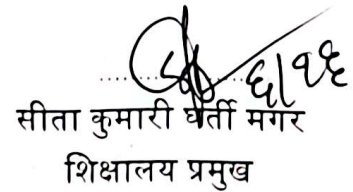 ६/१६
सीता कुमारी घर्ती मगर
शिक्षालय प्रमुख